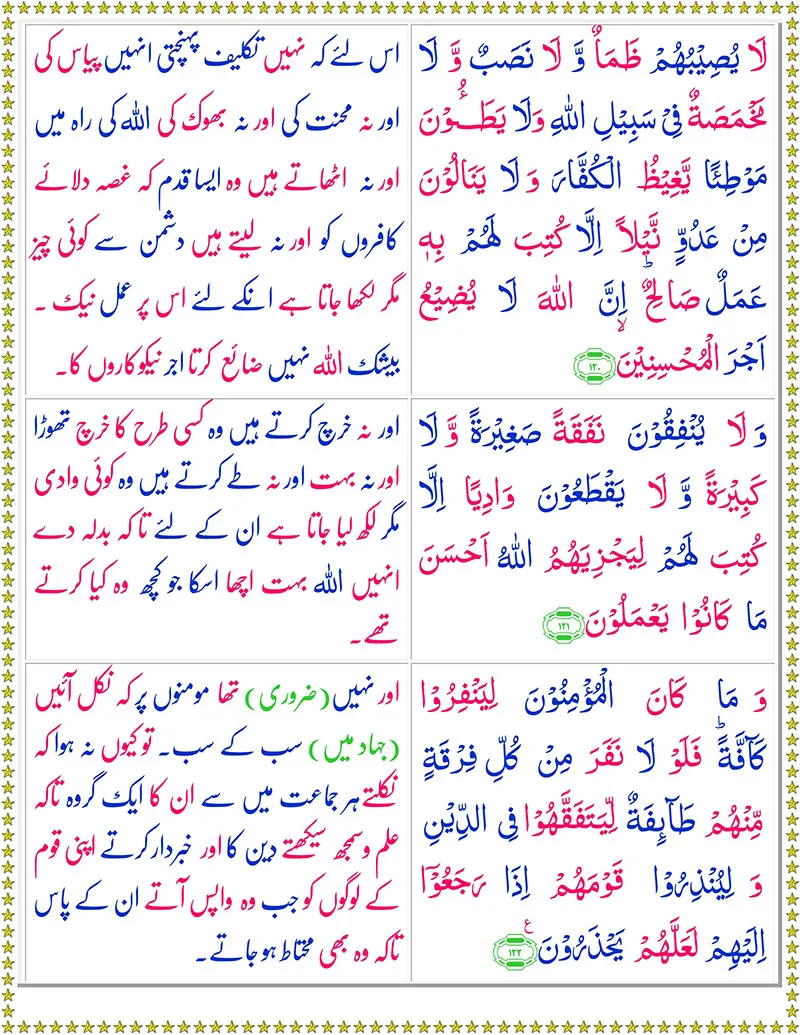 لَا يُصِيْبُهُمْ ظَمَاٌ وَّ لَا نَصَبٌ وَّ لَا
مَخْمَصَةٌ فِيْ سَبِيْلِ اللّٰهِ وَلَا يَطَـُٔوْنَ
مَوْطِئًا يَّغِيْظُ الْكُفَّارَ وَ لَا يَنَالُوْنَ
مِنْ عَدُوٍّ نَّيْلاً اِلَّا كُتِبَ لَهُمْ بِهٖ
عَمَلٌ صَالِحٌ ؕ اِنَّ اللّٰهَ لَا يُضِيْعُ
اَجْرَ الْمُحْسِنِيْنَ ۙ ۱۲۰
اس لئے کہ نہیں تکلیف پہنچتی انہیں پیاس کی
اور نہ محنت کی اور نہ بھوک کی اللہ کی راہ میں
اور نہ اٹھاتے ہیں وہ ایسا قدم کہ غصہ دلائے
کافروں کو اور نہ لیتے ہیں دشمن سے کوئی چیز
مگر لکھا جاتا ہے انکے لئے اس پر عمل نیک ۔
بیشک اللہ نہیں ضائع کرتا اجر نیکوکاروں کا۔
وَ لَا يُنْفِقُوْنَ نَفَقَةً صَغِيْرَةً وَّ لَا
كَبِيْرَةً وَّ لَا يَقْطَعُوْنَ وَادِيًا اِلَّا
كُتِبَ لَهُمْ لِيَجْزِيَهُمُ اللّٰهُ اَحْسَنَ
مَا كَانُوْا يَعْمَلُوْنَ ۱۲۱
اور نہ خرچ کرتے ہیں وہ کسی طرح کا خرچ تھوڑا
اور نہ بہت اور نہ طے کرتے ہیں وہ کوئی وادی
مگر لکھ لیا جاتا ہے ان کے لئے تاکہ بدلہ دے
انہیں اللہ بہت اچھا اسکا جو کچھ وہ کیا کرتے
تھے۔
وَ مَا كَانَ الْمُؤْمِنُوْنَ لِيَنْفِرُوْا
كَآفَّةً ؕ فَلَوْ لَا نَفَرَ مِنْ كُلِّ فِرْقَةٍ
مِّنْهُمْ طَآىِٕفَةٌ لِّيَتَفَقَّهُوْا فِي الدِّيْنِ
وَ لِيُنْذِرُوْا قَوْمَهُمْ اِذَا رَجَعُوْۤا
اِلَيْهِمْ لَعَلَّهُمْ يَحْذَرُوْنَ ع ۱۲۲
اور نہیں (ضروری) تھا مومنوں پر کہ نکل آئیں
(جہاد میں) سب کے سب۔ تو کیوں نہ ہوا کہ
نکلتے ہر جماعت میں سے ان کا ایک گروہ تاکہ
علم و سمجھ سیکھتے دین کا اور خبردار کرتے اپنی قوم
کے لوگوں کو جب وہ واپس آتے ان کے پاس
تاکہ وہ بھی محتاط ہو جاتے۔